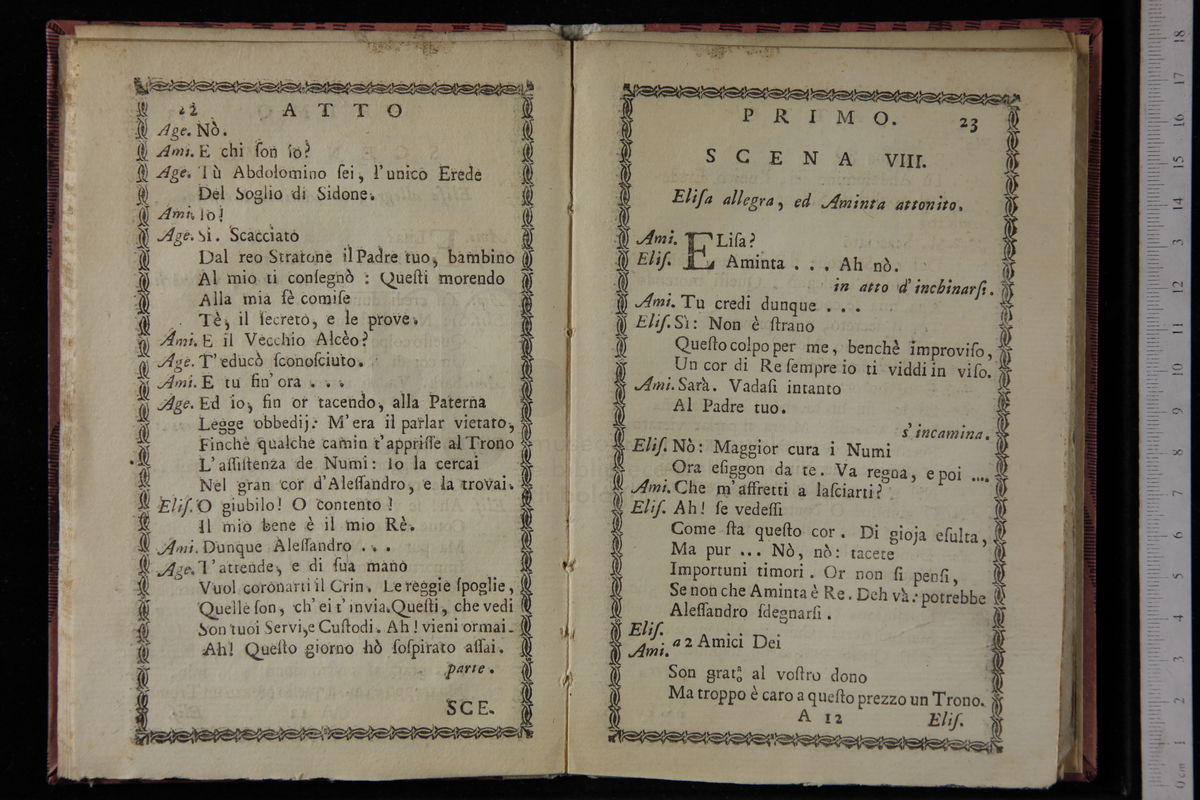 22 ATTO
Age. Nò.
Ami. E chi ſon io?
Age. Tù Abdolomino ſei, l'unico Erede
Del Soglio di Sidone.
Ami. Io!
Age. Si. Scacciato
Dal reo Stratone il Padre tuo, bambino
Al mio ti conſegnò: Queſti morendo
Alla mia fè comiſe
Tè, il ſecreto, e le prove.
Ami. E il Vecchio Alcèo?
Age. T'educò ſconoſciuto.
Ami. E tu ſin'ora . . .
Age. Ed io, ſin or tacendo, alla Paterna
Legge obbedij: M'era il parlar vietato,
Finchè qualche camin t'appriſſe al Trono
L'aſſiſtenza de Numi: Io la cercai
Nel gran cor d'Aleſſandro, e la trovai.
Eliſ. O giubilo! O contento!
Il mio bene è il mio Rè.
Ami. Dunque Aleſſandro . . .
Age. T'attende, e di ſua mano
Vuol coronarti il Crin. Le reggie ſpoglie,
Quelle ſon, ch'ei t'invia. Queſti, che vedi
Son tuoi Servi, e Cuſtodi. Ah! vieni ormai.
Ah! Queſto giorno hò ſoſpirato aſſai.
parte.
SCE.
PRIMO. 23
SCENA VIII.
Eliſa allegra, ed Aminta attonito.
Ami. ELiſa?
Eliſ. Aminta . . . Ah nò.
in atto d'inchinarſi.
Ami. Tu credi dunque . . .
Eliſ. Sì: Non è ſtrano
Queſto colpo per me, benchè improviſo,
Un cor di Re ſempre io ti viddi in viſo.
Ami. Sarà. Vadaſi intanto
Al Padre tuo.
s'incamina.
Eliſ. Nò: Maggior cura i Numi
Ora eſiggon da te. Va regna, e poi ....
Ami. Che m'affretti a laſciarti?
Eliſ. Ah! ſe vedeſſi
Come ſta queſto cor. Di gioja eſulta,
Ma pur ... Nò, nò: tacete
Importuni timori. Or non ſi penſi,
Se non che Aminta è Re. Deh và: potrebbe
Aleſſandro ſdegnarſi.
Eliſ.
Ami. a 2 Amici Dei
Son grat&ordf;o al voſtro dono
Ma troppo è caro a queſto prezzo un Trono.
A 12 Eliſ.
0 cm 1 2 3 4 5 6 7 8 9 10 11 12 13 14 15 16 17 18